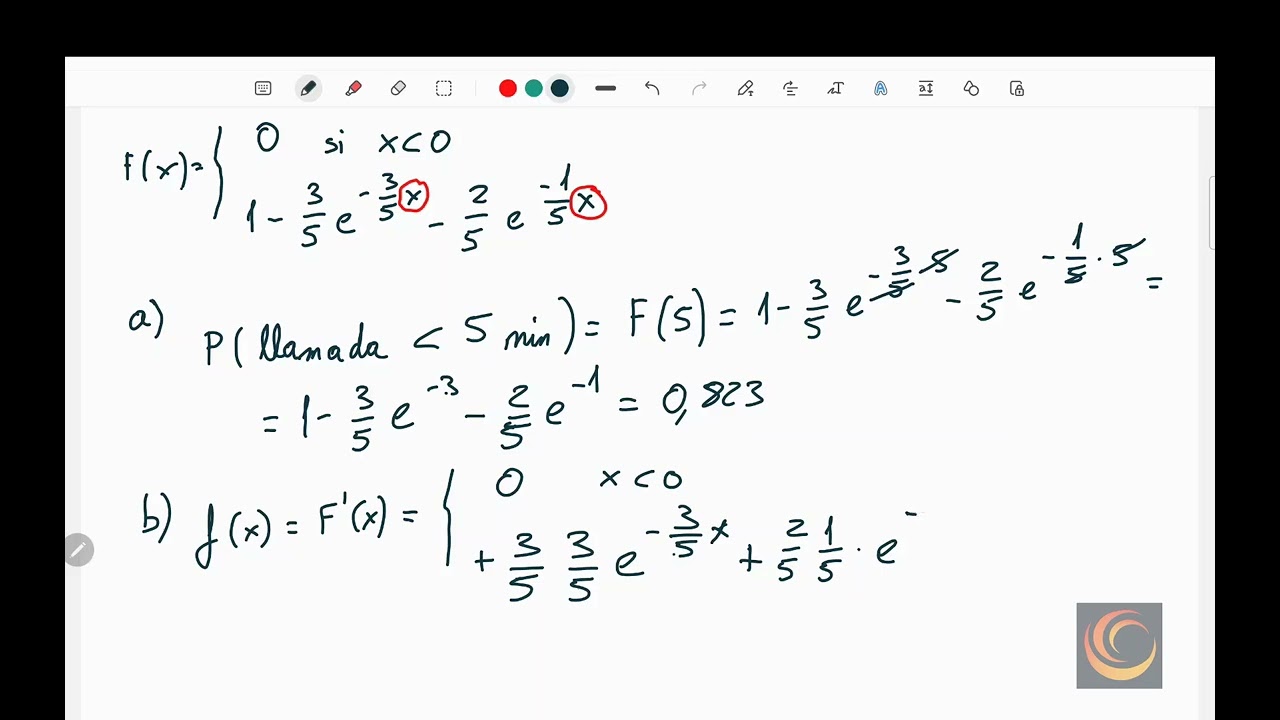 F(x)= { 0 si x<0
1 - 3/5 e^(-3/5 x) - 2/5 e^(-1/5 x)
a) P(llamada < 5 min) = F(5) = 1 - 3/5 e^(-3/5 · 5) - 2/5 e^(-1/5 · 5) =
= 1 - 3/5 e^(-3) - 2/5 e^(-1) = 0,823
b) f(x) = F'(x) = { 0 x<0
+ 3/5 3/5 e^(-3/5 x) + 2/5 1/5 · e^(-